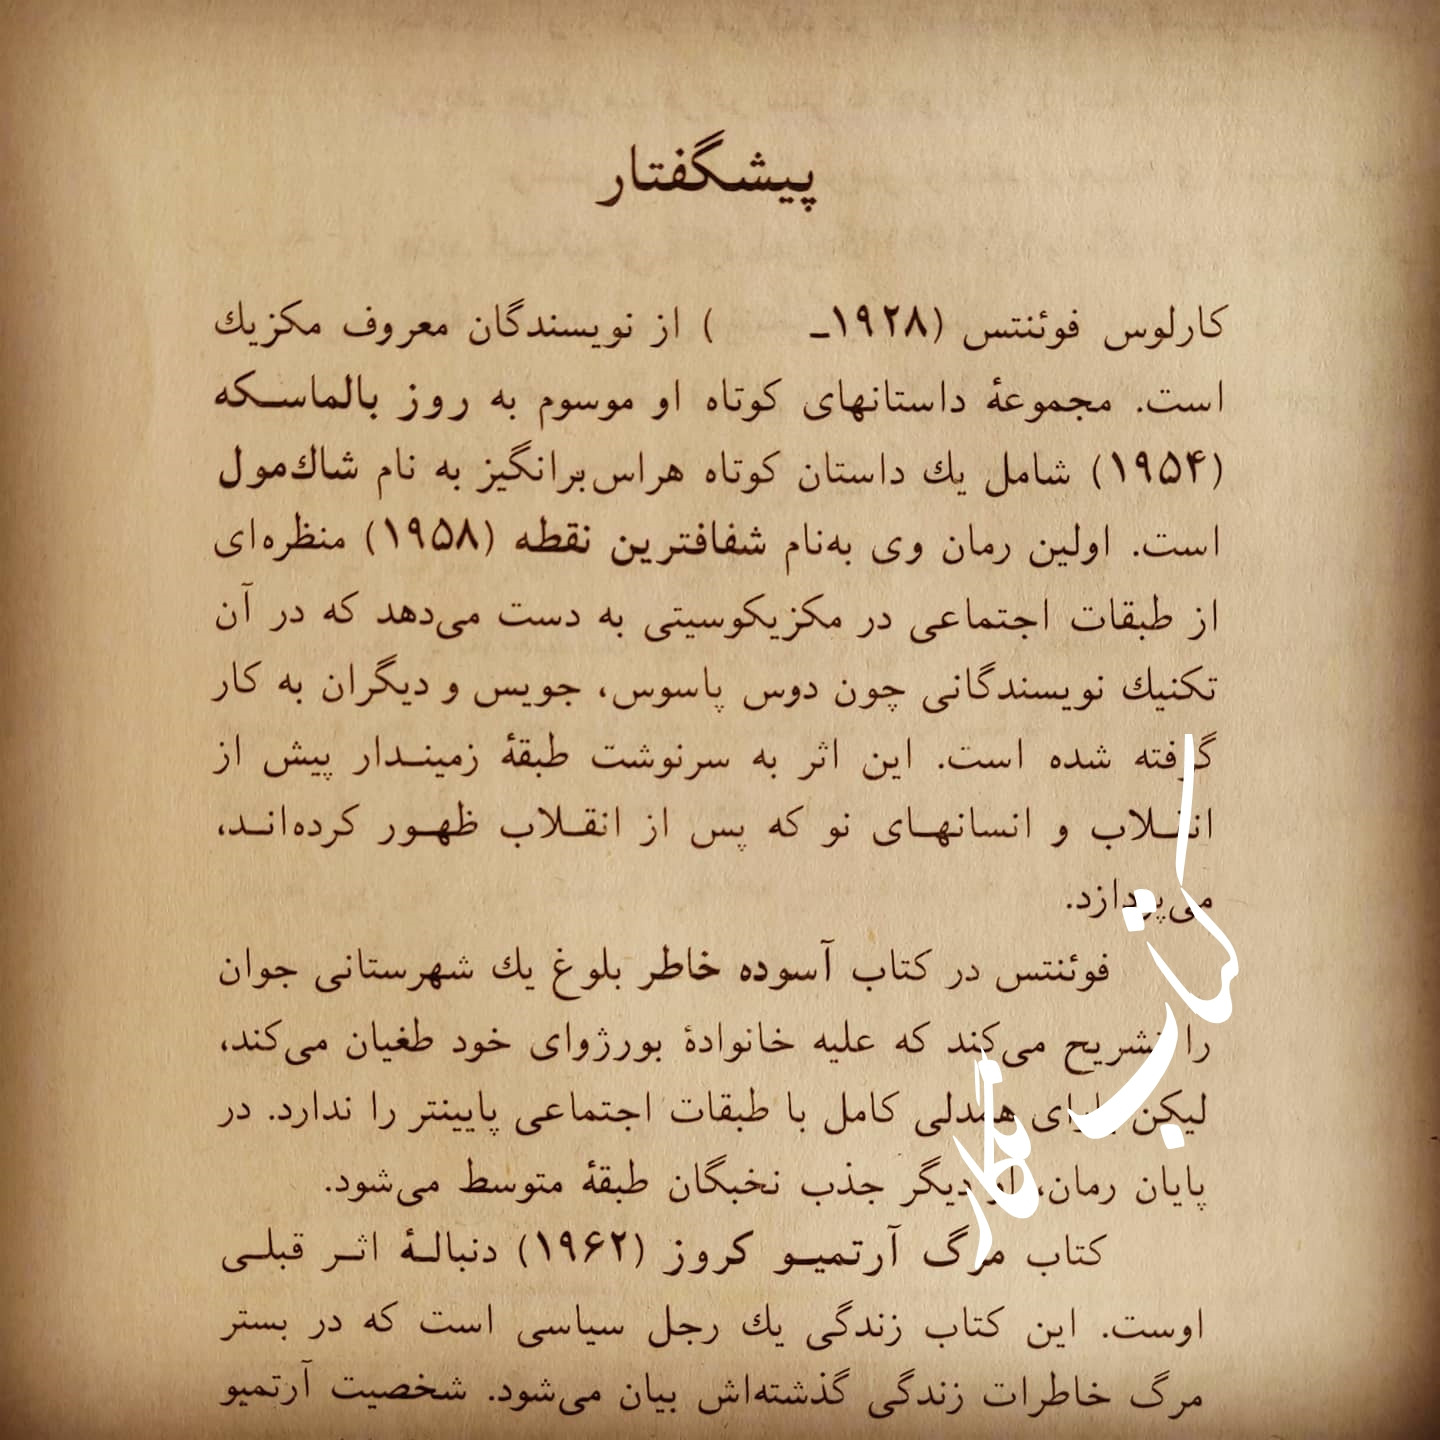 پیشگفتار
کارلوس فوئنتس (۱۹۲۸ـ ) از نویسندگان معروف مکزیك
است. مجموعهٔ داستانهای کوتاه او موسوم به روز بالماسـکه
(۱۹۵۴) شامل یك داستان کوتاه هراس‌برانگیز به نام شاك‌مول
است. اولین رمان وی به‌نام شفافترین نقطه (۱۹۵۸) منظره‌ای
از طبقات اجتماعی در مکزیکوسیتی به دست می‌دهد که در آن
تکنیك نویسندگانی چون دوس پاسوس، جویس و دیگران به کار
گرفته شده است. این اثر به سرنوشت طبقهٔ زمینـدار پیش از
انقـلاب و انسانهـای نو که پس از انقـلاب ظهـور کرده‌انـد،
می‌پردازد.
فوئنتس در کتاب آسوده خاطر بلوغ یك شهرستانی جوان
را تشریح می‌کند که علیه خانوادهٔ بورژوای خود طغیان می‌کند،
لیکن یارای همدلی کامل با طبقات اجتماعی پایینتر را ندارد. در
پایان رمان، او دیگر جذب نخبگان طبقهٔ متوسط می‌شود.
کتاب مرگ آرتمیـو کروز (۱۹۶۲) دنبالـهٔ اثـر قبلـی
اوست. این کتاب زندگی یك رجل سیاسی است که در بستر
مرگ خاطرات زندگی گذشته‌اش بیان می‌شود. شخصیت آرتمیو
کتاب نگار